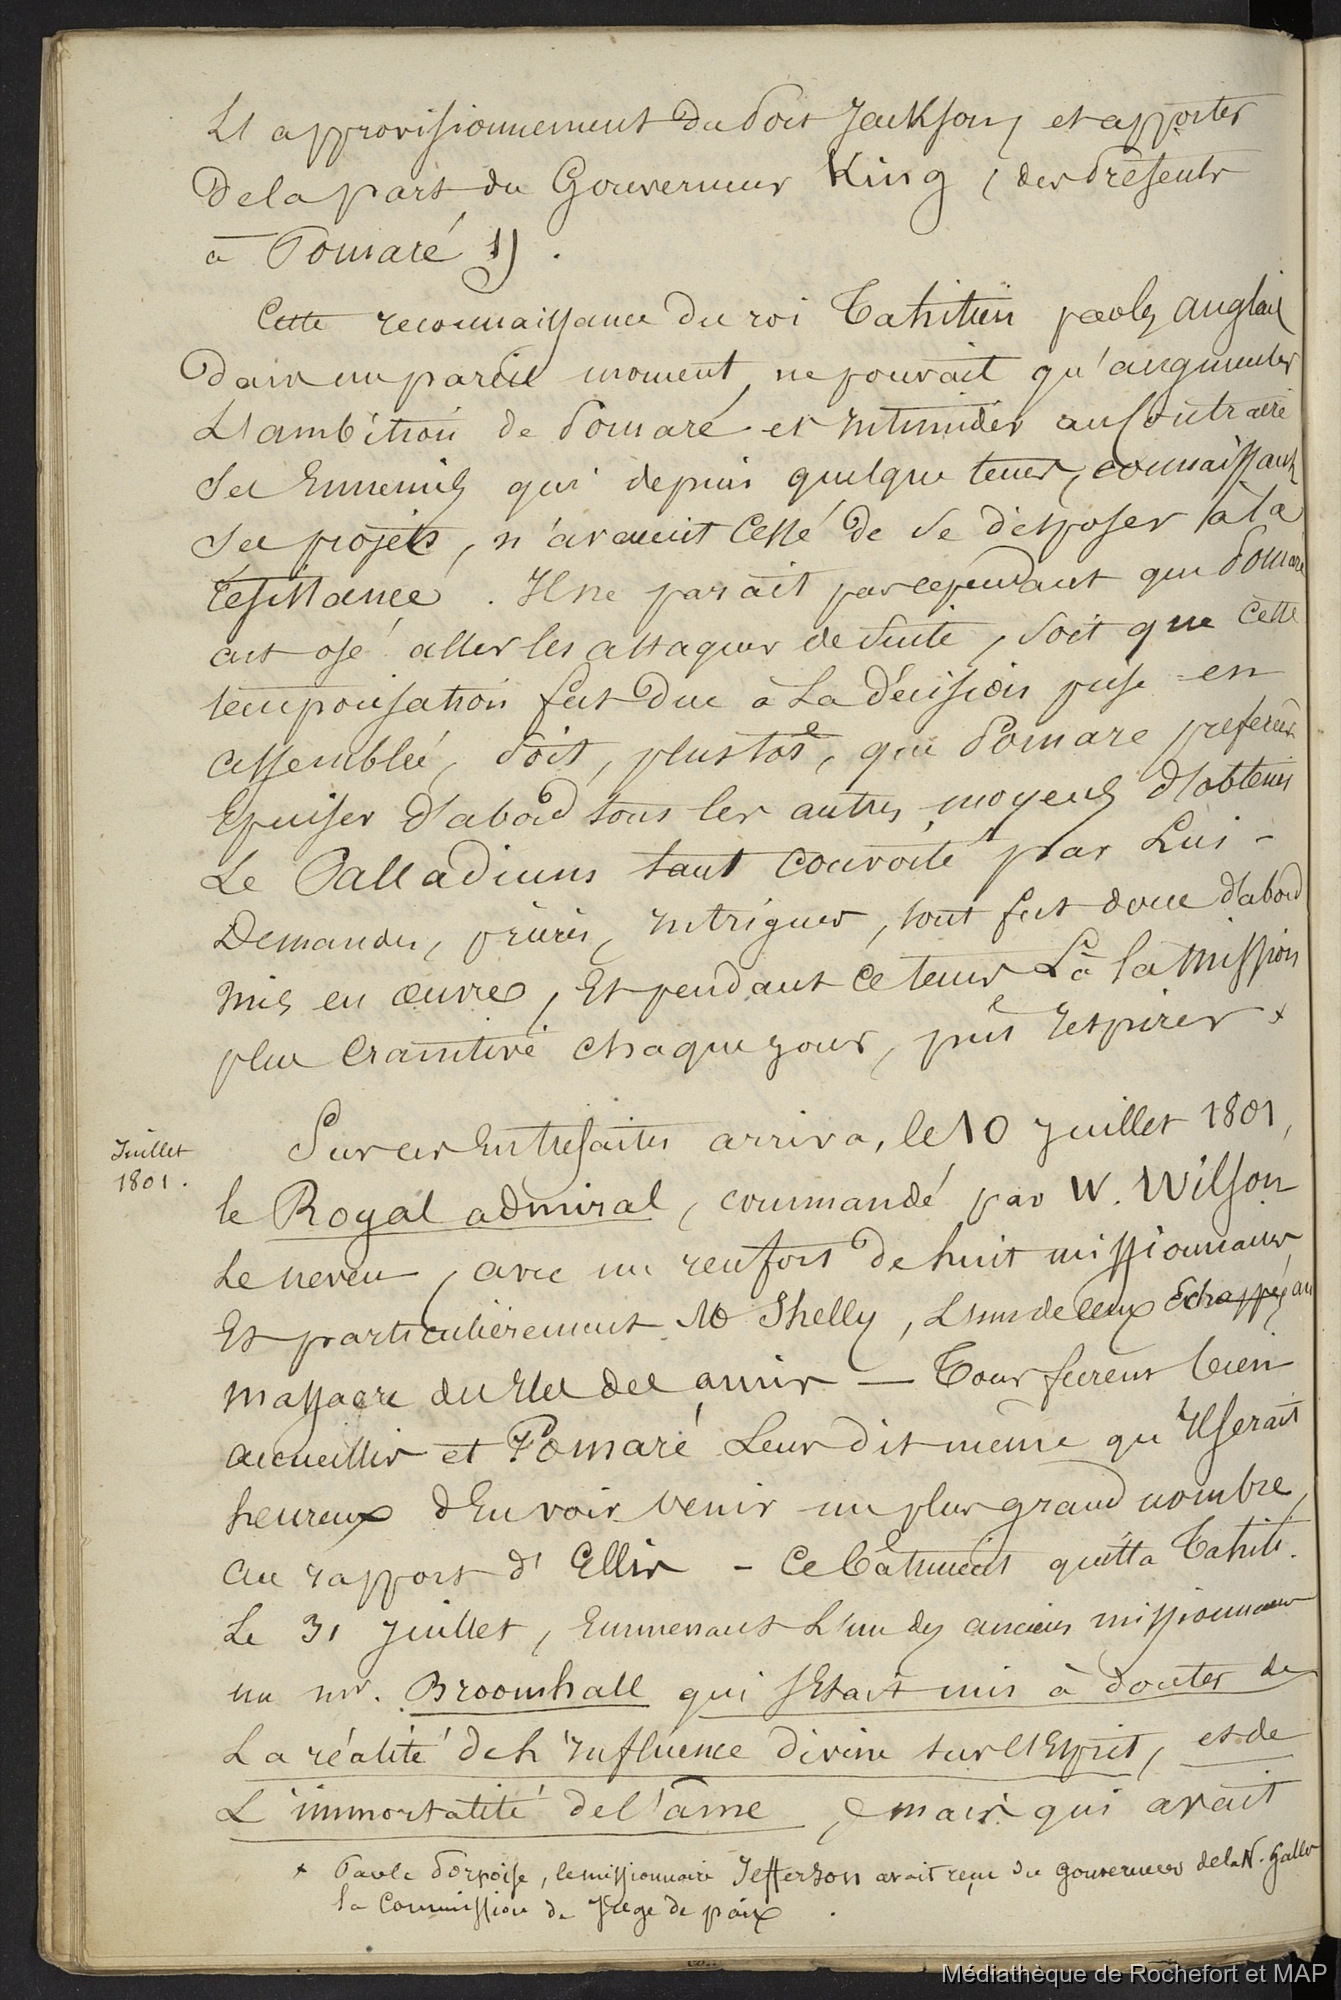 L'approvisionnement du Port Jackson, et apporter
de la part du Gouverneur King, des présents
à Pomaré 1) .
Cette reconnaissance du roi Tahitien par les anglais
dans un pareil moment, ne pouvait qu'augmenter
L'ambition de Pomaré et intimider au Contraire
Ses Ennemis qui depuis quelque tems, connaissant
Ses projets, n'avaient Cessé de Se disposer à la
résistance. Il ne parait pas cependant que Pomaré
ait osé aller les attaquer de Suite, Soit que cette
temporisation fut Due à La décision prise en
assemblée, Soit, plustôt, que Pomaré préférât
Epuiser d'abord tous les autres moyens d'obtenir
Le Palladium tant convoité par Lui -
Demandes, prières, intrigues, tout fut donc d'abord
mis en œuvre, Et pendant ce tems Là la mission
plus Craintive chaque jour, put respirer x
Juillet
1801.
Sur ces Entrefaites arriva, le 10 Juillet 1801,
le Royal admiral, commandé par W. Wilson
Le neveu, avec un renfort de huit missionnaires,
Et particulièrement Mr Shelly, L'un de ceux Echappés au
massacre du Iles des amis — Tous furent bien
accueillis et Pomaré Leur dit même qu'Il serait
heureux d'En voir venir un plus grand nombre,
au rapport d'Ellis - Ce bâtiment quitta Tahiti.
Le 31 Juillet, Emmenant L'un des anciens missionnaires
un mr. Broomhall qui s'Etait mis à douter de
La réalité de L'Influence divine sur l'Esprit, et de
L'immortalité de l'âme, mais qui avait
x Par le Porpoise, le missionnaire Jefferson avait reçu du gouverneur de la N. Galles
la Commission de Juge de paix .
Médiathèque de Rochefort et MAP